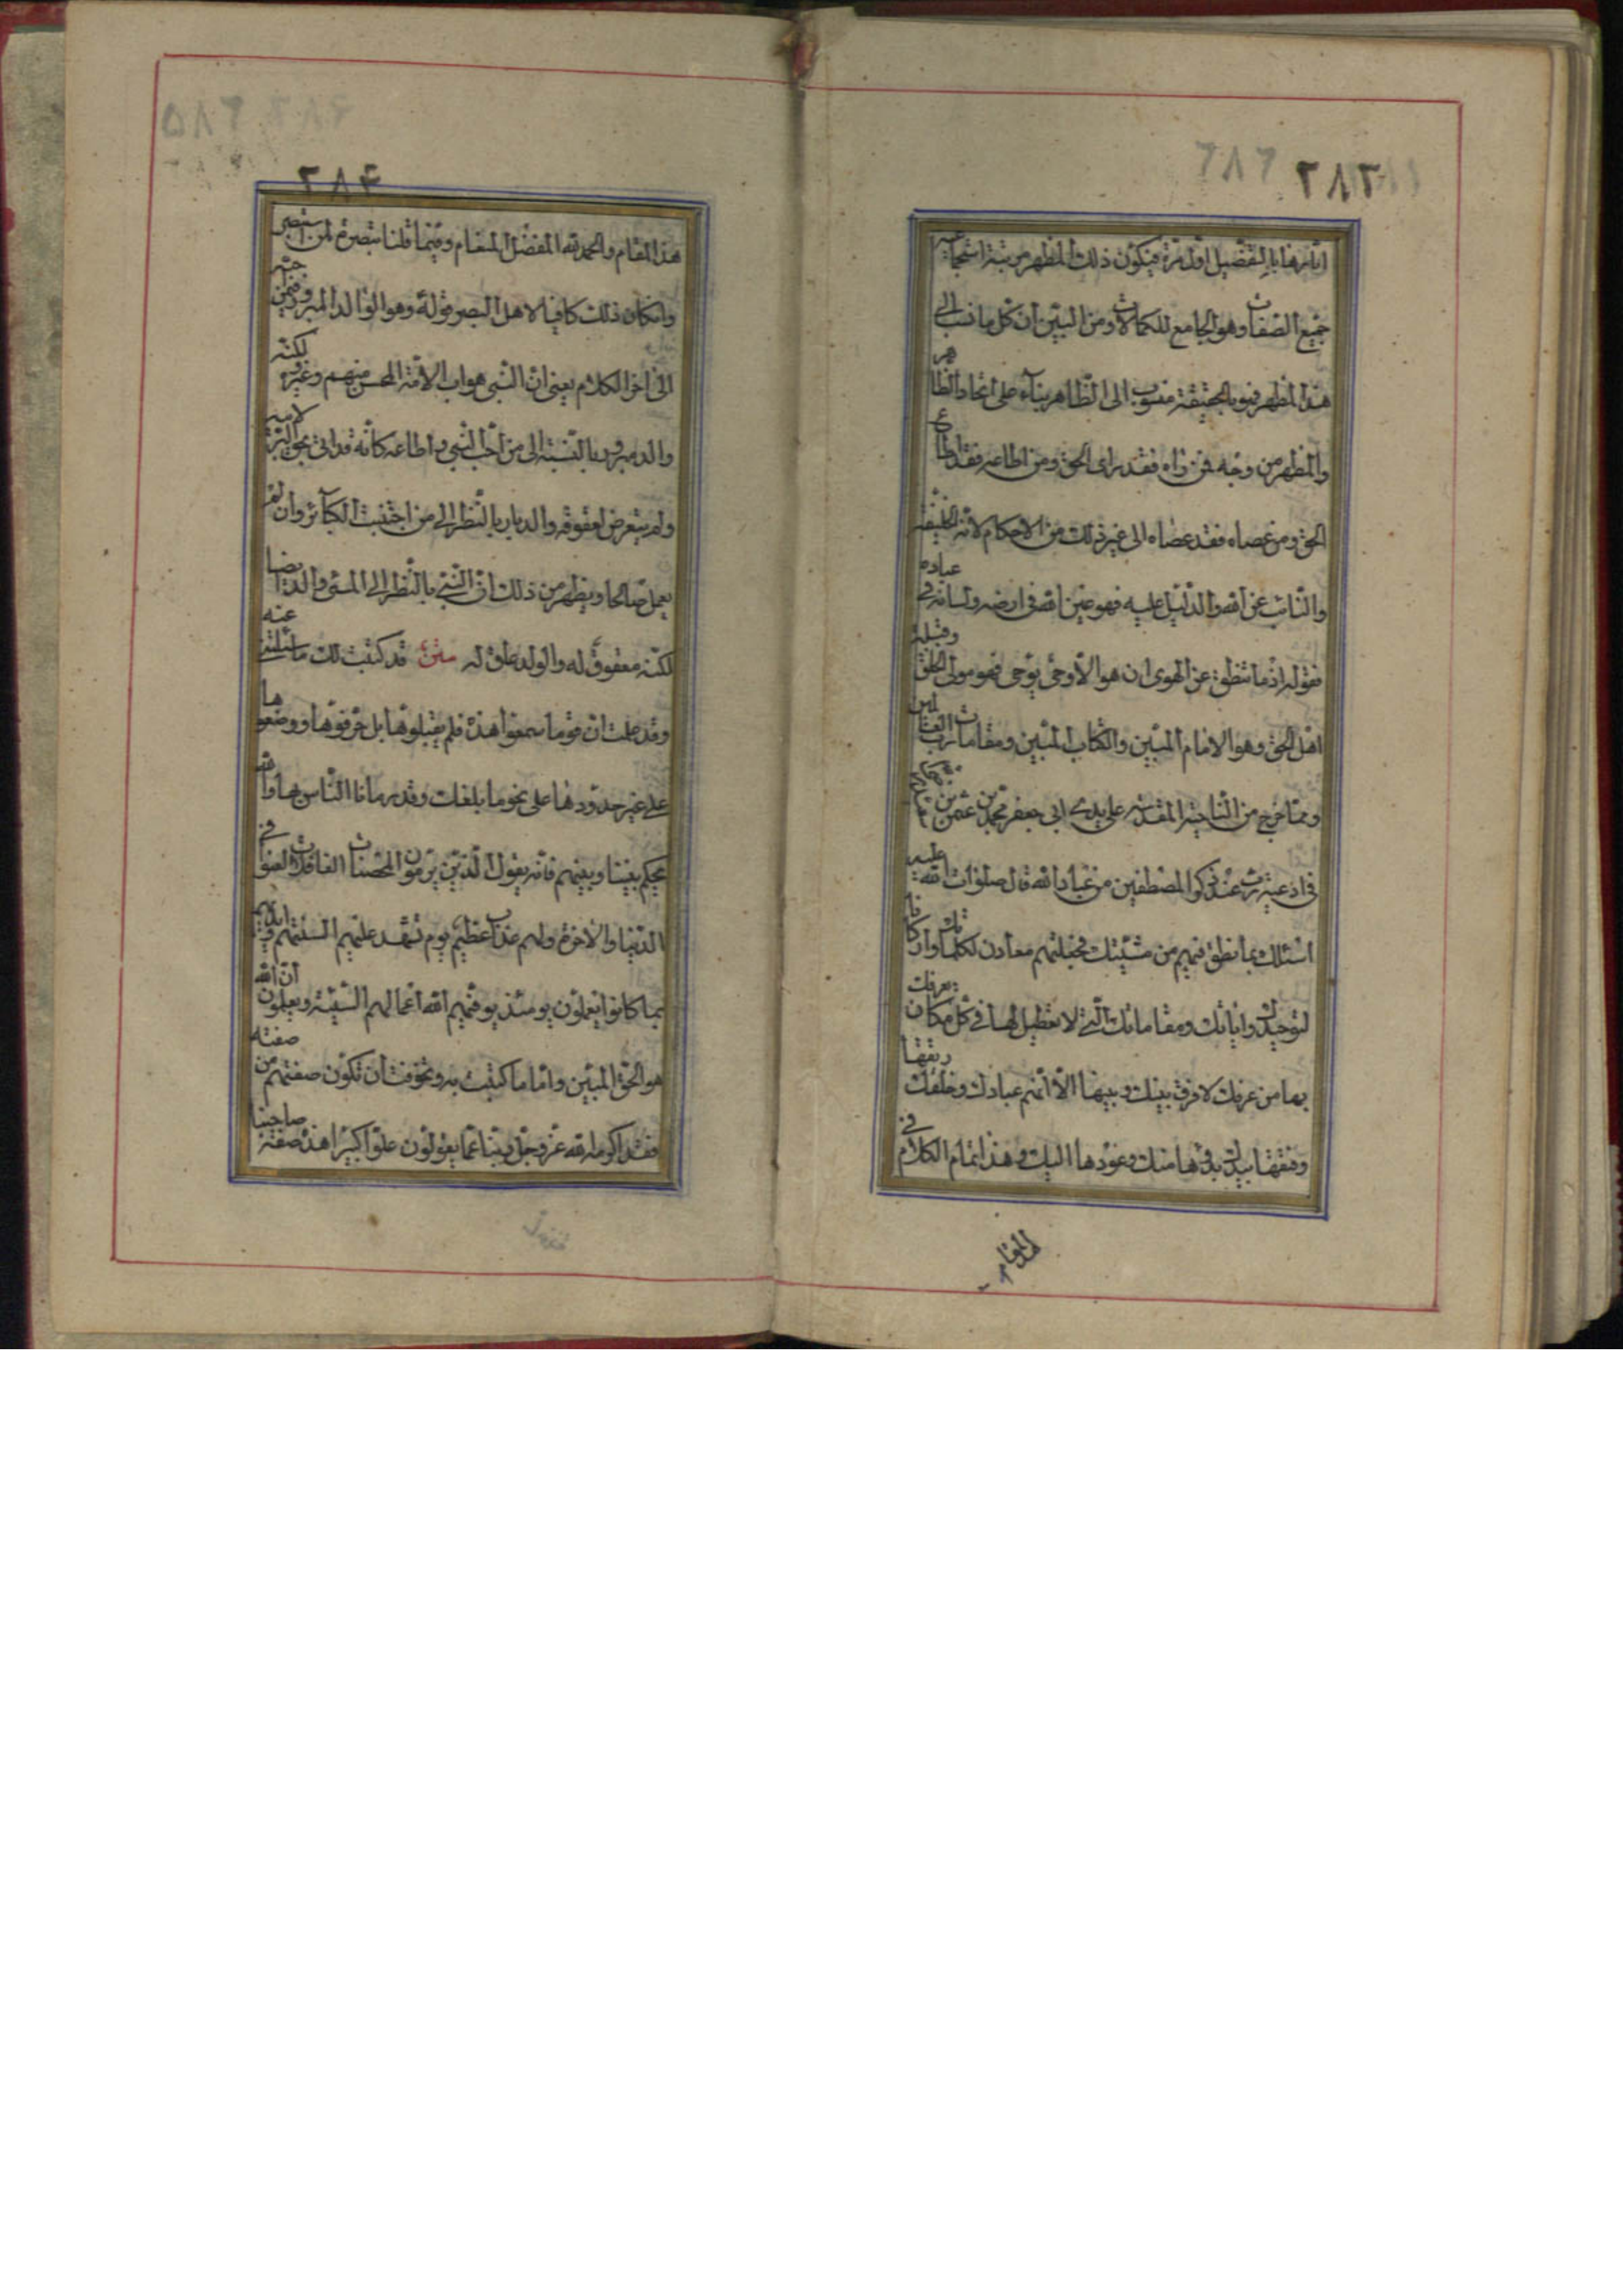 ٢٨٣
اثارها بالتفضيل اول مرة فيكون ذلك المظهر مرتبة استجماعيه
جميع الصفات وهو الجامع للكمالات ومن البين ان كل ما نسب الى
هذا المظهر فهو بالحقيقة منسوب الى الظاهر بناء على اتحاد الظاهر
والمظهر من وجه فمن راه فقد راى الحق ومن اطاعه فقد اطاع
الحق ومن عصاه فقد عصاه الى غير ذلك من الاحكام لانه الخليفة
والنائب عن الله والدليل عليه فهو عين الله فى ارضه ولسانه فى عباده
فقوله اذ ما ينطق عن الهوى ان هو الا وحى يوحى فهو مولى الخلق وقبلة
اهل الحق وهو الامام المبين والكتاب المبين ومقامات رب العالمين
ومما خرج من الناحية المقدسه على يدى ابى جعفر محمد بن عثمن بن
فى ادعية رجب عند ذكر المصطفين من عباد الله قال صلوات الله عليه
اسئلك بما نطق فيهم من مشيتك فجعلتهم معادن لكلماتك واركانا
لتوحيدك واياتك ومقاماتك التى لا تعطيل لها فى كل مكان يعرفك
بها من عرفك لا فرق بينك وبينها الا انهم عبادك وخلقك
رتقها وفتقها بيدك بدؤها منك وعودها اليك وهذا تمام الكلام فى
هذا المقام
٢٨۴
هذا المقام والحمد لله المفضل المنعام وفيما قلنا تبصرة لمن استبصر
وانكان ذلك كافيا لاهل البصر قوله وهو الوالد المبرور فمن
الى اخر الكلام يعنى ان النبى هو اب الامة المحسن منهم وغيره لكنه
والد مبرور بالنسبة الى من احب النبى واطاعه كانه قد اتى بحق البر لابيه
ولم يتعرض لعقوقه والد بار بالنظر الى من اجتنبت الكبائر وان لم
يعمل صالحا ويظهر من ذلك ان النبى بالنظر الى المسئ والد ايضا
لكنه معقوق له والولد عاق له متن قد كتبت لك ما سئلتنى عنه
وقد علمت ان قوما سمعوا هذه فلم يقبلوها بل حرفوها ووضعوها
على غير حدودها على نحو ما بلغك وقد رمانا الناس بها والله
يحكم بيننا وبينهم فانه يقول الذين يرمون المحصنات الغافلات لعنوا فى
الدنيا والاخرة ولهم عذاب عظيم يوم تشهد عليهم السنتهم وايديهم
بما كانوا يعملون يومئذ يوفيهم الله اعمالهم السيئة ويعلمون ان الله
هو الحق المبين واما ما كتبت به ونحوه فت ان تكون صفتهم من صفته
فقد اكرمه الله عز وجل ربنا عما يقولون علوا كبيرا هذه صفة صاحبنا